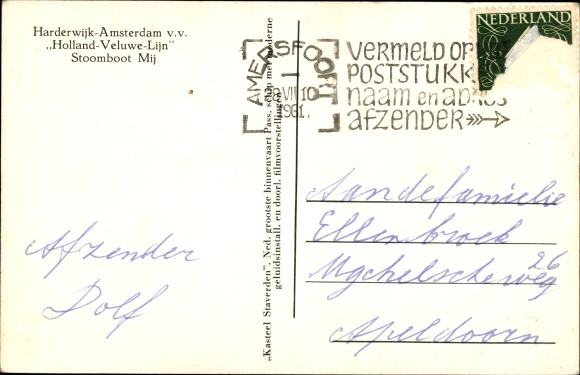 Harderwijk-Amsterdam v.v.
„Holland-Veluwe-Lijn"
Stoomboot Mij
Afzender
Dolf
„Kasteel Staverden". Ned. grootste binnenvaart Pass. schip met moderne
geluidsinstall. en doorl. filmvoorstellingen
AMERSFOORT
VII 10
1961.
VERMELD OP
POSTSTUKK
naam en adres
afzender
NEDERLAND
Aan de familie
Ellenbroek
Ugchelscheweg 26
Apeldoorn